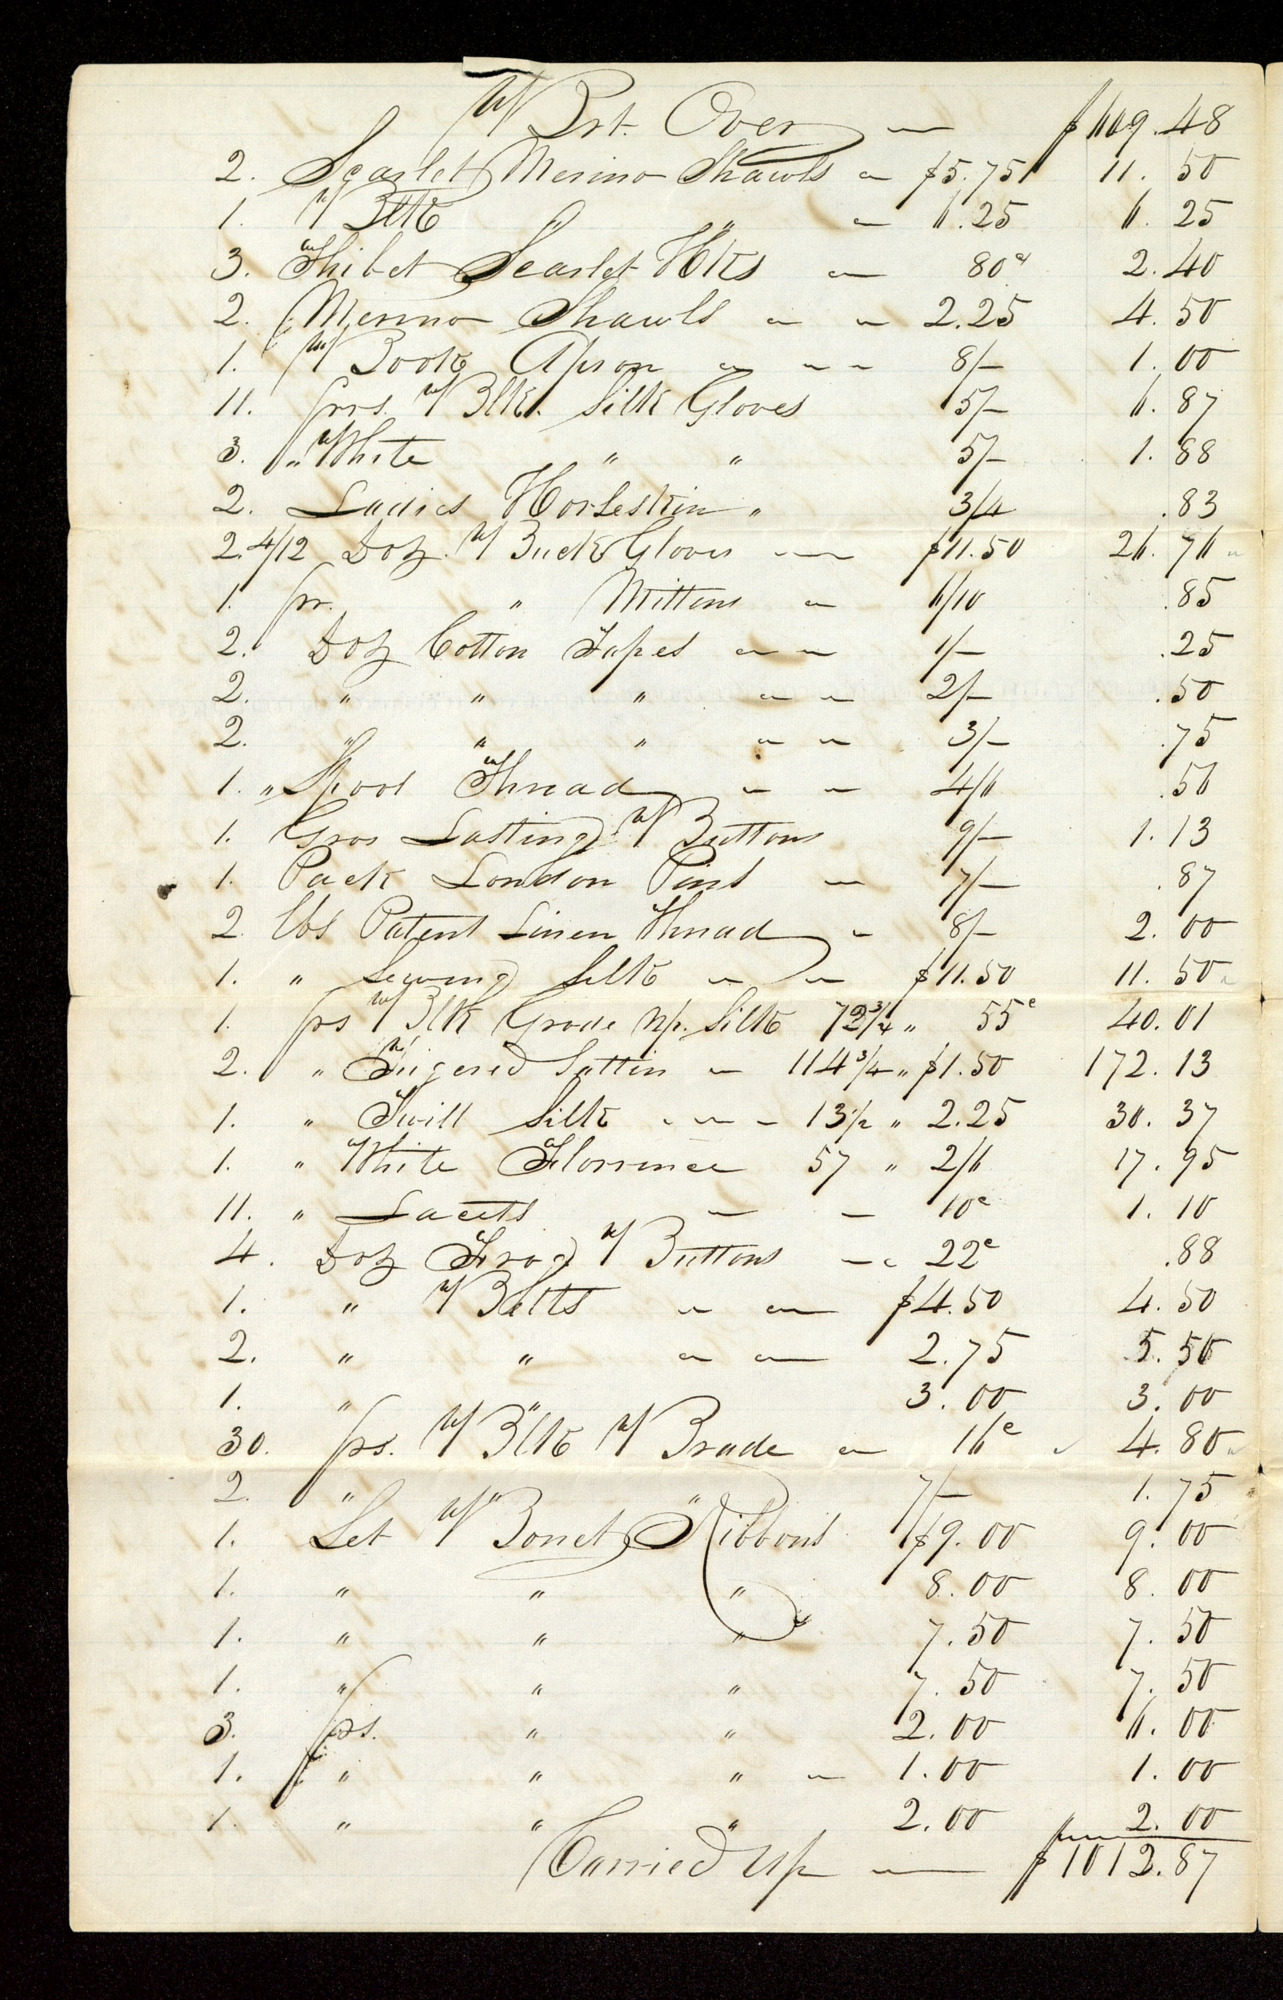 Brt. Over — $609.48
2. Scarlet Merino Shawls — $5.75 11.50
1. Blk " " — 6.25 6.25
3. Thibet Scarlet Hkfs — 80c 2.40
2. Merino Shawls — — 2.25 4.50
1. Book Apron — — — 8/— 1.00
11. prs. Blk. Silk Gloves 5/— 6.87
3. " White " " 5/— 1.88
2. Ladies Horseskin " 3/4 .83
2.4/12 Doz. Buck Gloves — $11.50 26.76
1. pr. " Mittens — 6/10 .85
2. Doz Cotton Tapes — — 1/— .25
2. " " " — — 2/— .50
2. " " " — — 3/— .75
1. " Spool Thread — — 4/6 .56
1. Gros Lasting Buttons 9/— 1.13
1. Pack London Pins — 7/— .87
2 lbs Patent Linen Thread — 8/— 2.00
1. " Sewing Silk — — $11.50 11.50
1. ps Blk Grode Np. Silk 72 3/4 " 55c 40.01
2. " Figered Sattin — 114 3/4 " $1.50 172.13
1. " Twill Silk — — — 13 1/2 " 2.25 30.37
1. " White Florrence 57 " 2/6 17.95
11. " Lacets — — 10c 1.10
4. Doz Frog Buttons — 22c .88
1. " Belts — — $4.50 4.50
2. " " — — 2.75 5.50
1. " " 3.00 3.00
30. ps. Blk Brade — 16c 4.80
2. " " " 7/— 1.75
1. Set Bonet Ribbons $9.00 9.00
1. " " " 8.00 8.00
1. " " " 7.50 7.50
1. " " " 7.50 7.50
3. ps. " " 2.00 6.00
1. " " " — 1.00 1.00
1. " " " 2.00 2.00
Carried Up — $1012.87